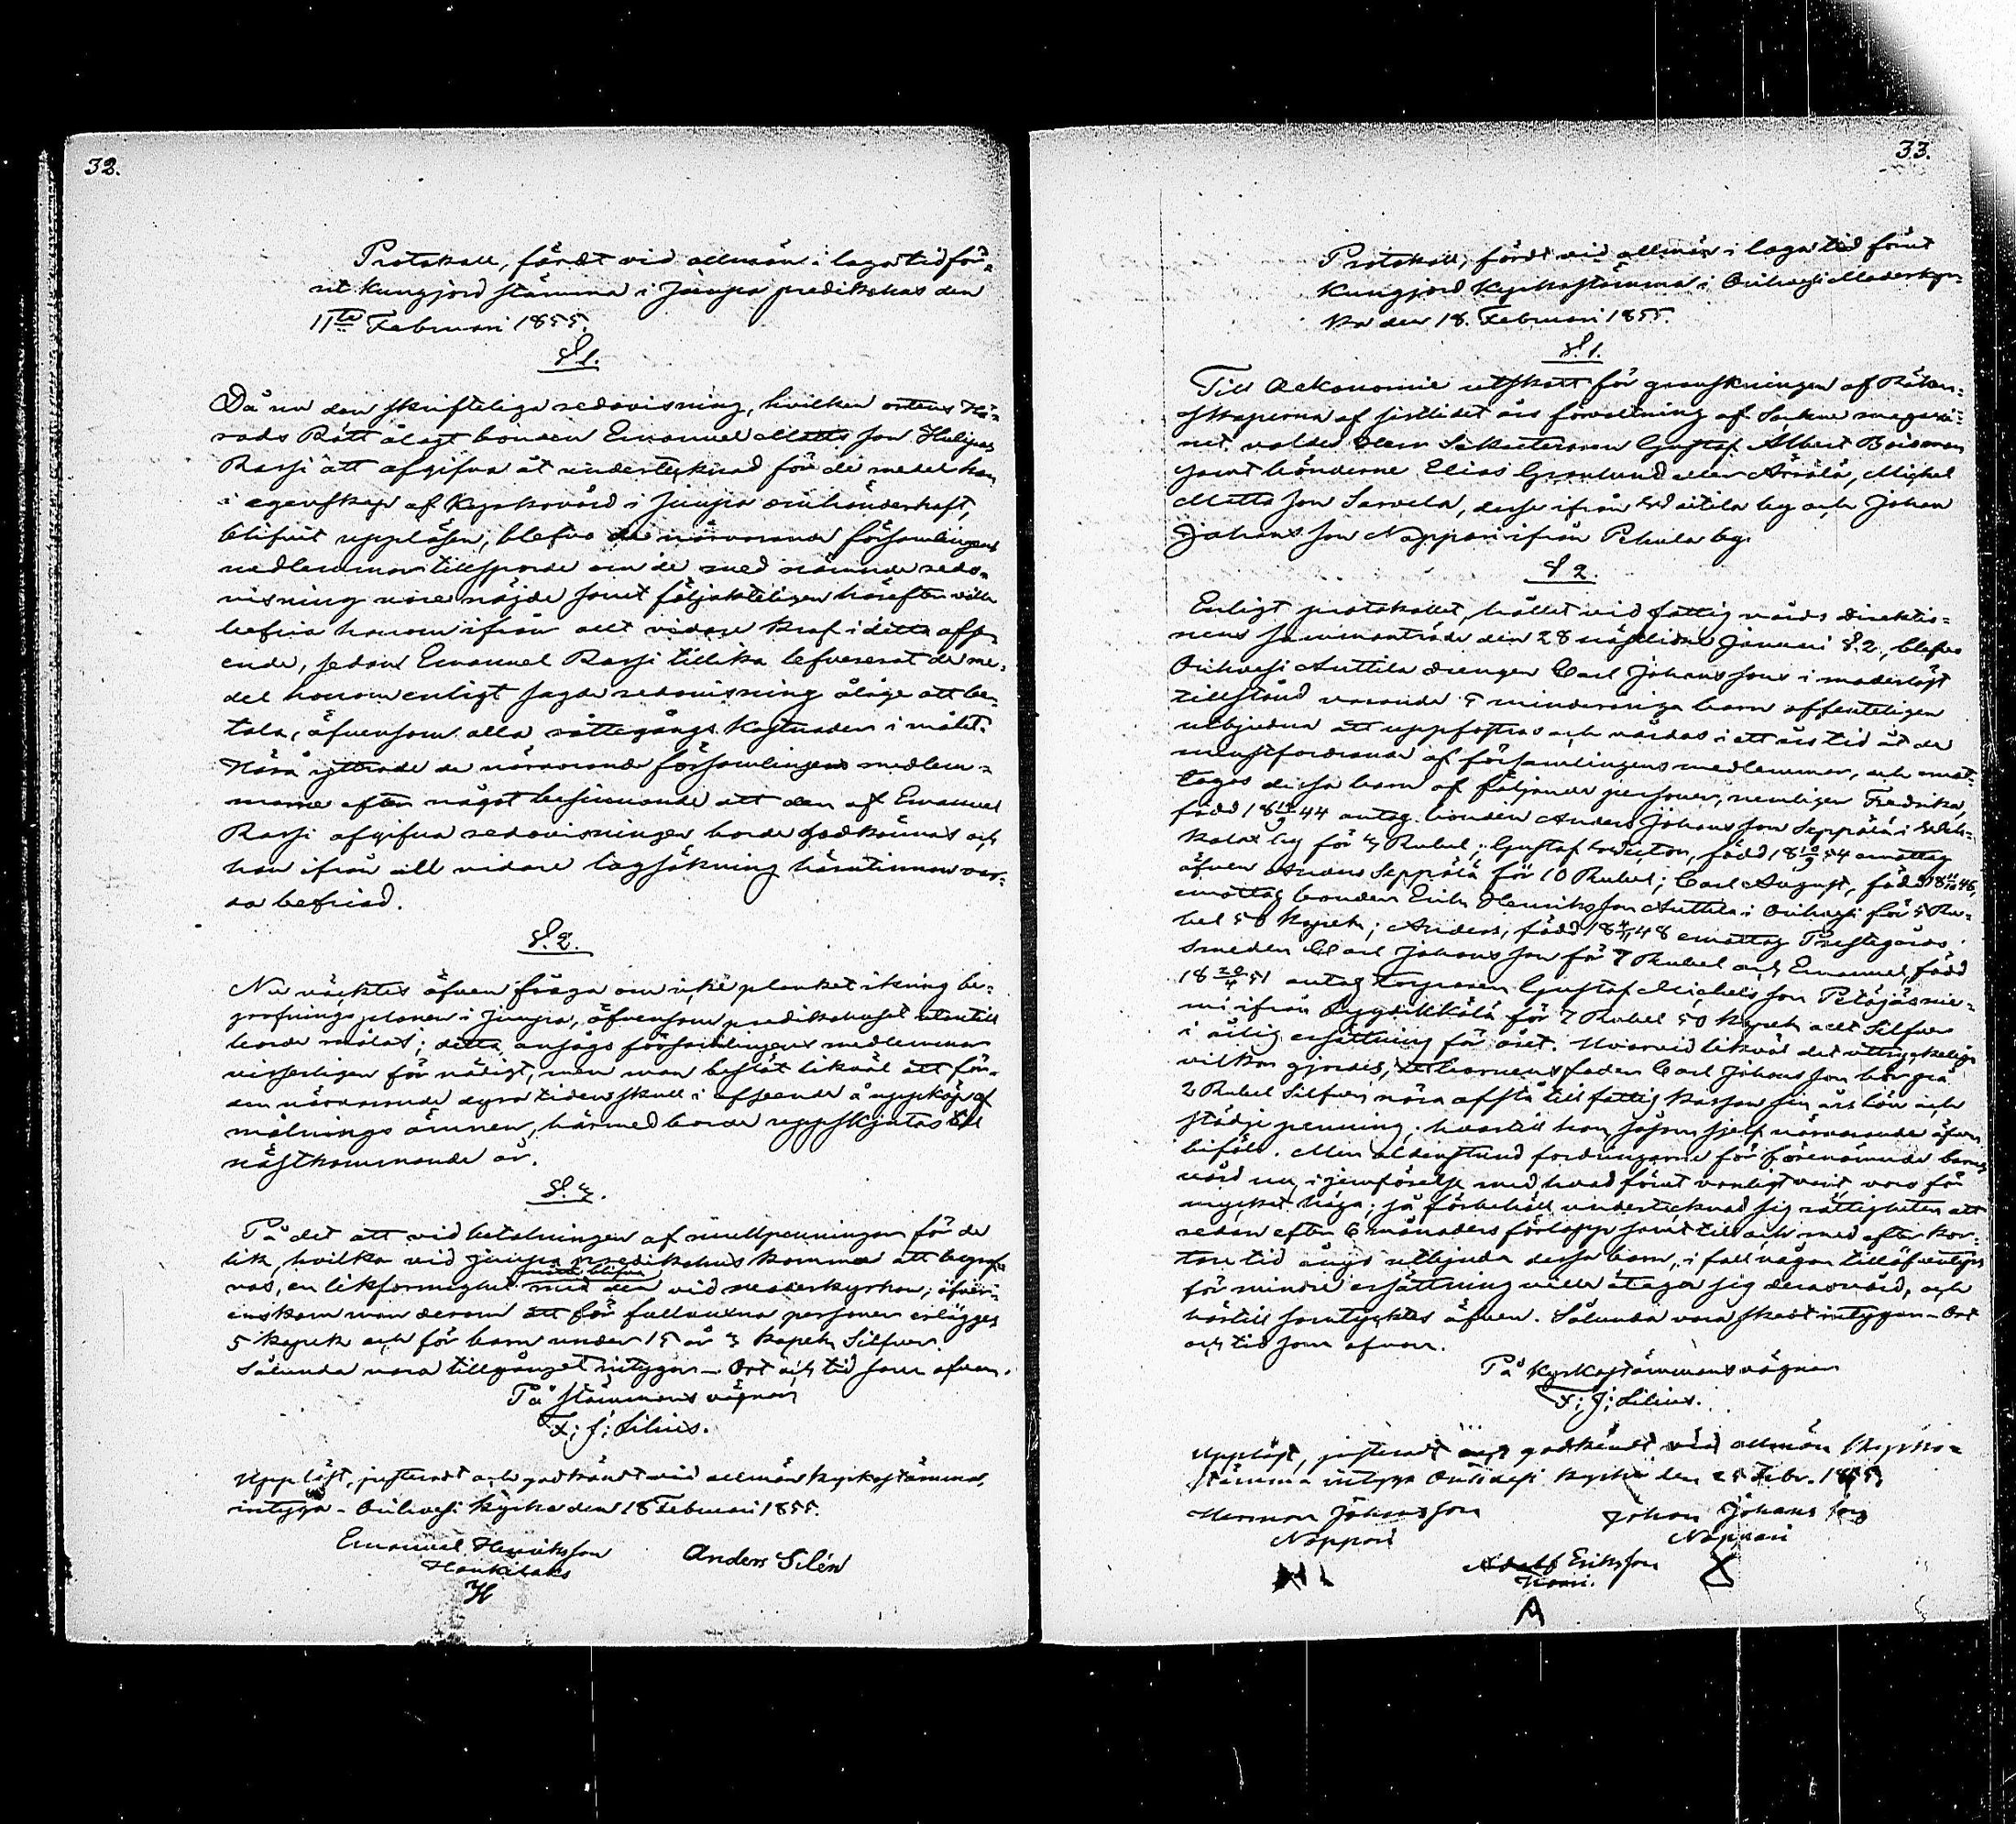 32.
Protokoll, fördt vid allmän i laga tid för-
ut kungjord stämma i Juupa predikohus den
11te Februari 1855.
§ 1.
Då nu den skrifteliga redovisning, hvilken ortens Hä-
rads Rätt ålagt bonden Emanuel Matts son
Rassi att afgifva åt undertecknad för de medel han
i egenskap af kyrkovärd i Juupa omhänderhaft,
blifvit uppläsen, blefvo de närvarande församlingens
medlemmar tillsporde om de med nämnde redo-
visning vore nöjde samt följakteligen härefter ville
befria honom ifrån allt vidare kraf i detta afse-
ende, sedan Emanuel Rassi tillika lefvererat de me-
del honom enligt sagde redovisning ålåge att be-
tala, äfvensom alla rättegångs kostnader i målet.
Härå yttrade de närvarande församlingens medlem-
marne efter något besinnande att den af Emanuel
Rassi afgifna redovisningen borde godkännas och
han ifrån all vidare lagsökning härutinnan var-
da befriad.
§. 2.
Nu väcktes äfven fråga om icke planket ikring be-
grafningsplanen i Juupa, äfvensom predikohuset utantill
borde målas; detta ansågs församlingens medlemmar
visserligen för nödigt, men man beslöt likväl att för
den närvarande dyra tidens skull i afseende å uppköp af
målnings ämnen, härmed borde uppskjutas till
nästkommande år.
§. 3.
På det att vid betalningen af mullpenningar för de
lik, hvilka vid Juupa predikohus komma att begraf-
vas, en likformighet måtte blifva med den vid moderkyrkan; öfver-
enskom man derom att för fullvuxna personer erlägges
5 kopek och för barn under 15 år 3 kopek Silfver.
Sålunda vara tillgånget intygar - Ort och tid som ofvan.
På stämmans vägnar
F: J: Silius.
Uppläst, justeradt och godkändt vid allmän kyrkostämma,
intyga - Orihvesi kyrka den 18 Februari 1855.
Emanuel Henriksson Anders Silén
Hankilaks
H
33.
Protokoll, fördt vid allmän i laga tid förut
kungjord kyrkostämma i Orihvesi Moderkyr-
ka den 18. Februari 1855.
§. 1.
Till Oekonomie utskott för granskningen af Räken-
skaperna af sistlidet års förvaltning af Sockne magasi-
net valdes Herr Gustaf Albert Boisman
samt bönderne Elias Grönlund eller Arvälä, Michel
Matts son Sarvela, desse ifrån by och Johan
Johans son Nappari ifrån Pehula by.
§ 2.
Enligt protokollet, hållet vid fattigvårds direktio-
nens sammanträde den 28 nästlidne Januari §. 2, blefvo
Orihvesi Anttila drengen Carl Johanssons i moderlöst
tillstånd varande 5 minderåriga barn offenteligen
utbjudna att uppfostras och vårdas i ett års tid åt de
minstfordrande af församlingens medlemmar, och emot-
togos dessa barn af följande personer, nemligen Fredrika,
född 18 44 antog bonden Anders Johans son Seppälä i
by för 3 Rubel; Gustaf född 18 54 emottog
äfven Anders Seppälä för 10 Rubel; Carl August, född 18 46,
emottog bonden Erik Henriks son Anttila i Orihvesi för 5 Ru-
bel 50 kopek; Anders, född 18 48 emottog Prestgårds
smeden Carl Johans son för 7 Rubel och Emanuel, född
18 20/4 51 antog torparen Gustaf Michels son Petäjäsnie-
mi ifrån för 7 Rubel 50 kopek allt Silfver
i årlig ersättning för året. Hvarvid likväl det uttryckeliga
vilkor gjordes, att barnens fader Carl Johans son bör på
2 Rubel Silfver när afstå till fattig kassan sin årslön och
städje penning, hvartill han såsom sjelf närvarande äfven
biföll. Men aldenstund fordringarne för förenämnde barns
vård nu i jemförelse med hvad förut vanligt varit, voro för
mycket höga; så förbehöll undertecknad sig rättigheten att
redan efter 6 månaders förlopp samt till och med efter kor-
tare tid ånyo utbjuda dessa barn, i fall någon tilläfventyrs
för mindre ersättning ville åtaga sig deras vård, och
härtill samtycktes äfven. Sålunda vara skedt intygar - Ort
och tid som ofvan.
På Kyrkostämmans vägnar
F: J: Silius.
Uppläst, justeradt och godkändt vid allmän kyrko-
stämma intyga Orihvesi kyrka den 25 Febr. 1855
Herman Johans son Johan Johans son
Nappari Nappari
Adolf Eriks son
A